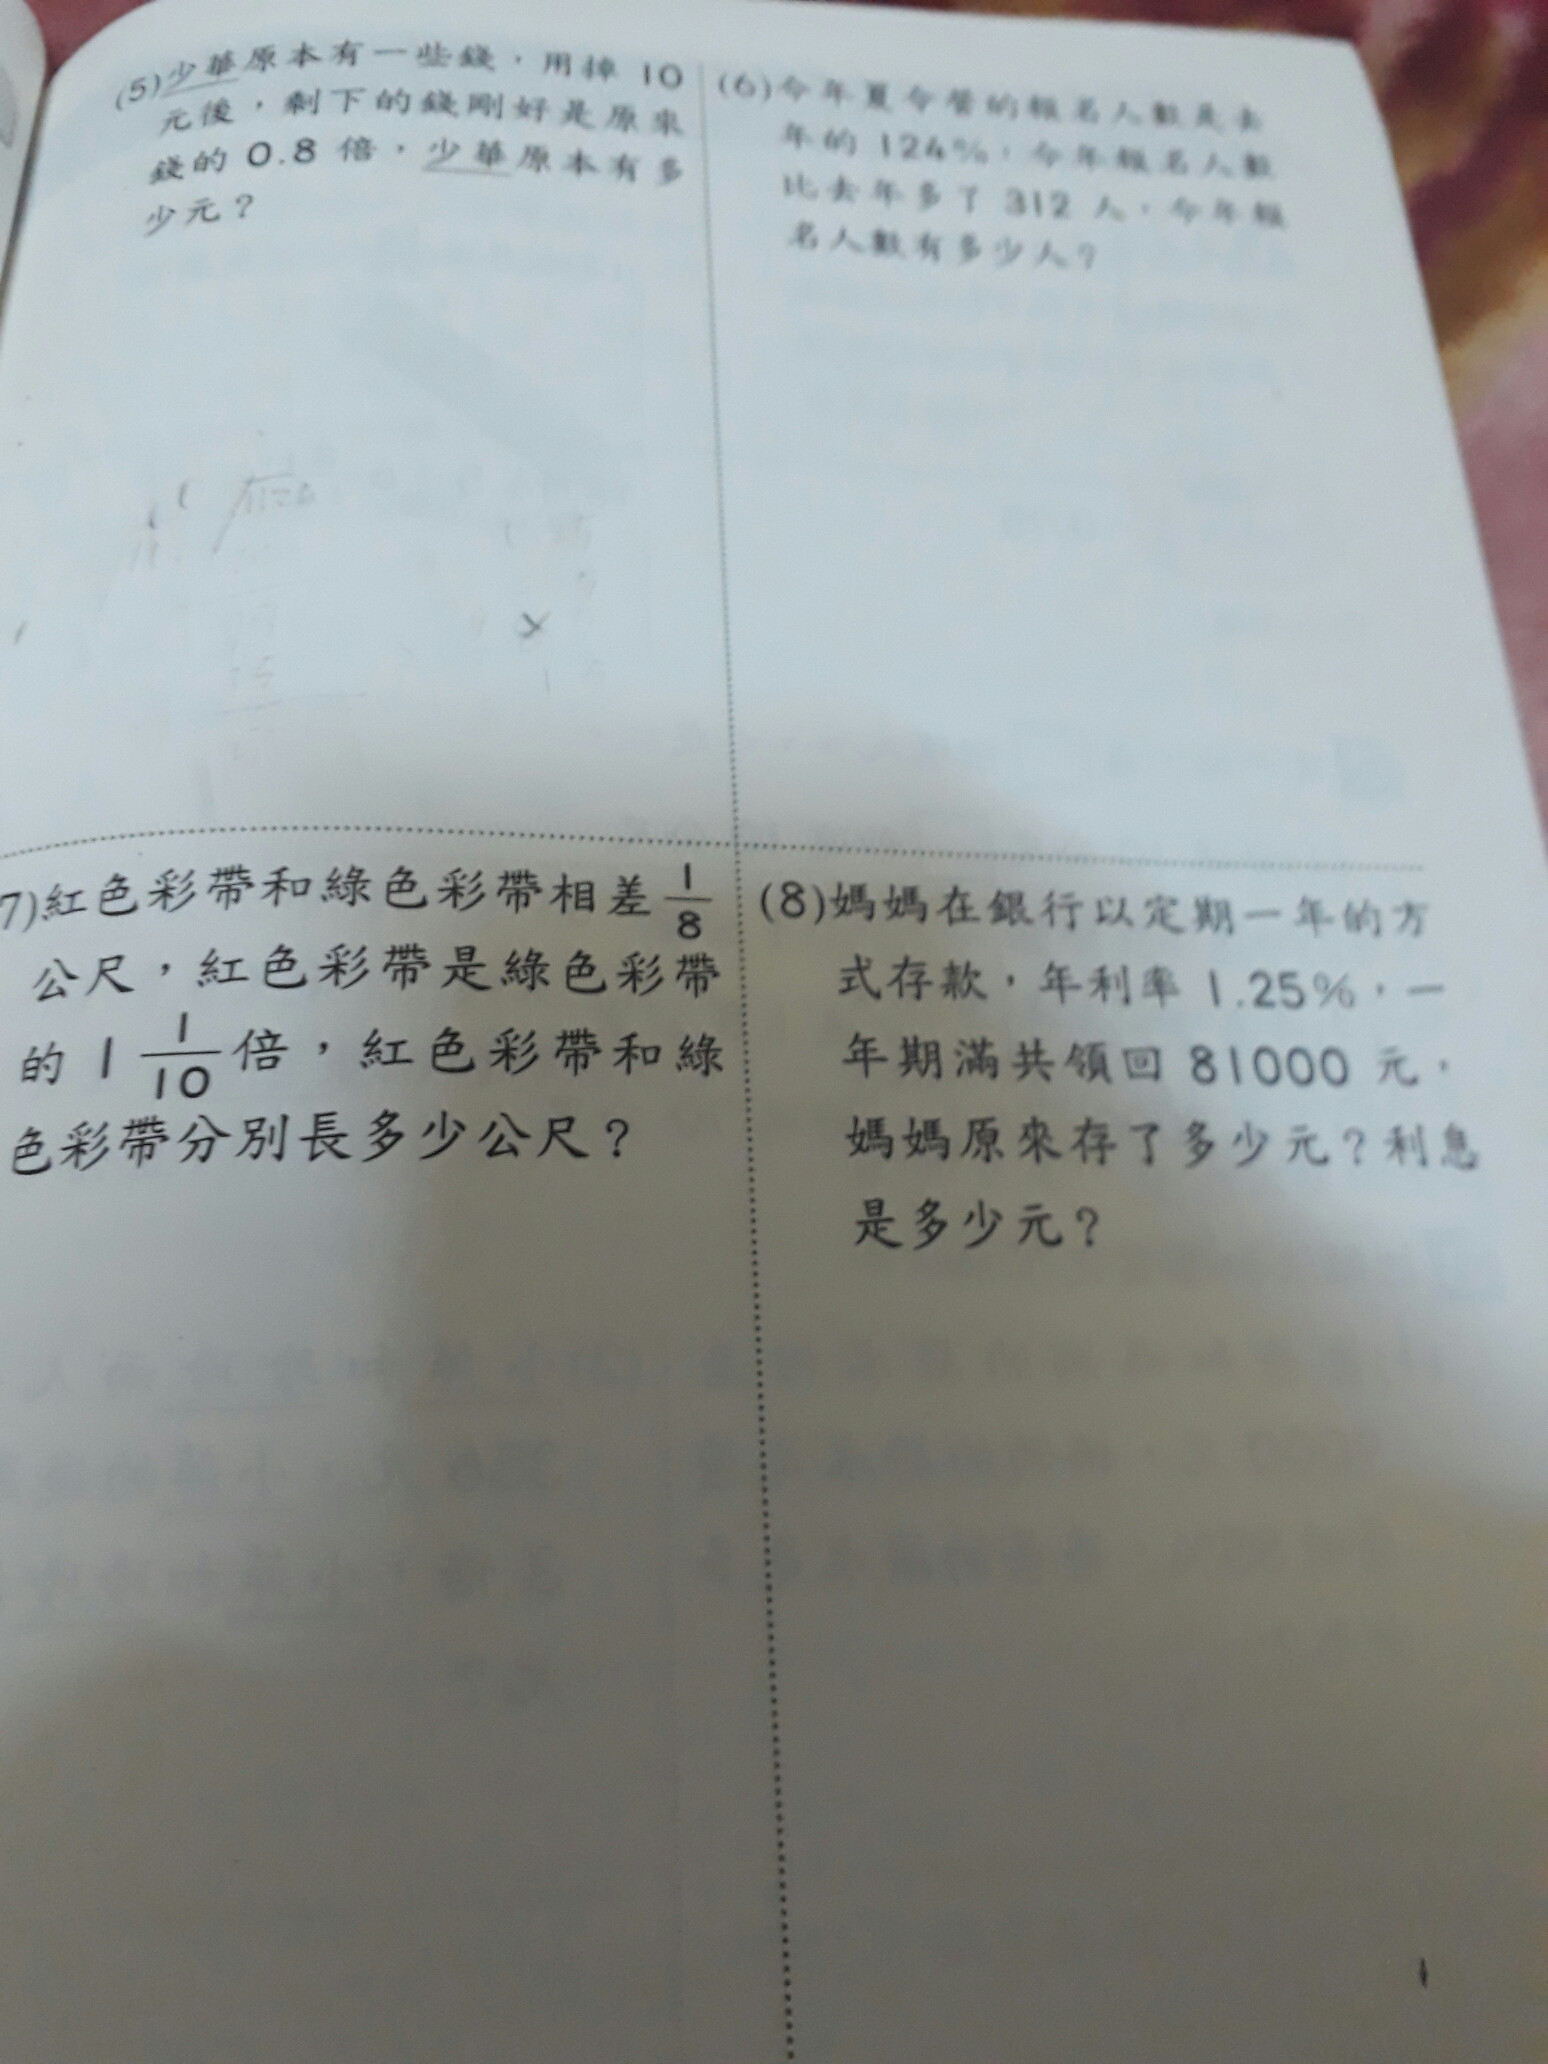 (5)少華原本有一些錢，用掉 10
元後，剩下的錢剛好是原來
錢的 0.8 倍，少華原本有多
少元？
(6)今年夏令營的報名人數是去
年的 124%，今年報名人數
比去年多了 312 人，今年報
名人數有多少人？
7)紅色彩帶和綠色彩帶相差 1/8
公尺，紅色彩帶是綠色彩帶
的 1 1/10 倍，紅色彩帶和綠
色彩帶分別長多少公尺？
(8)媽媽在銀行以定期一年的方
式存款，年利率 1.25%，一
年期滿共領回 81000 元，
媽媽原來存了多少元？利息
是多少元？